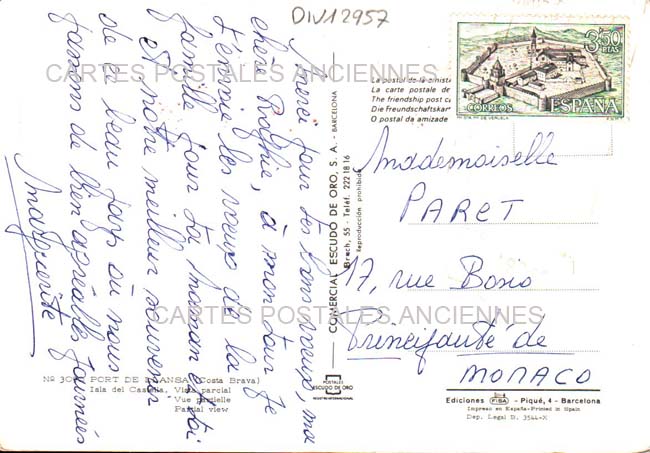 DIV12957
3,50
PTAS
CORREOS
ESPAÑA
CARTES POSTALES ANCIENNES
La postal de la amist
La carte postale de
The friendship post c
Die Freundschaftskar
O postal da amizade
Merci pour tes bons vœux, ma
chère Sophie, à mon tour je
t'envoie les vœux de la
famille pour ta maman et toi
et notre meilleur souvenir
de ce beau pays où nous
passons de bien agréables journées
Marguerite
COMERCIAL ESCUDO DE ORO, S. A. - BARCELONA
Bruch, 55 - Teléf. 222 18 16
Reproducción prohibida
Mademoiselle
PARET
17, rue Bosio
Principauté de
MONACO
CARTES POSTALES ANCIENNES
PORT DE LLANSÁ (Costa Brava)
Isla del Castella. Vista parcial
Vue partielle
Partial view
POSTALES
ESCUDO DE ORO
REGISTRO INTERNACIONAL
Ediciones FISA - Piqué, 4 - Barcelona
Impreso en España-Printed in Spain
Dep. Legal B. 3544-X